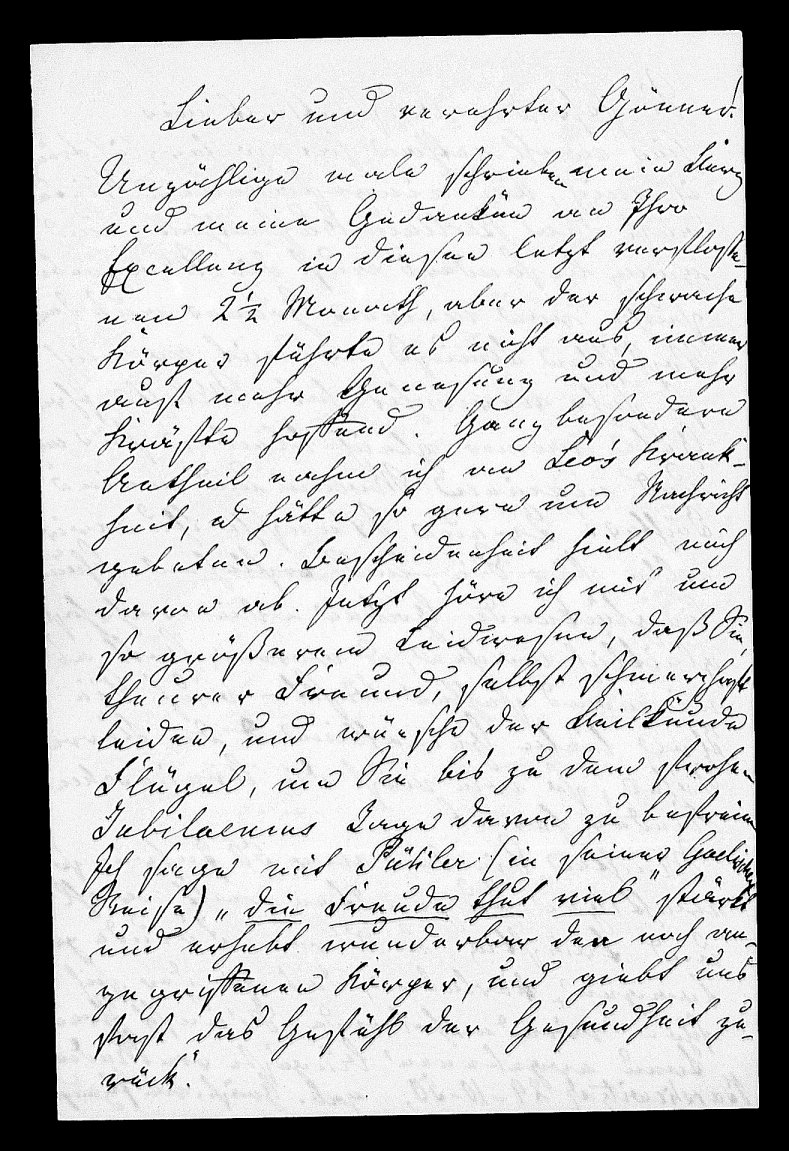 Lieber und verehrter Gönner!
Unzählige male schrieben mein Herz
und meine Gedanken an Ihro
Excellenz in diesen letzt verflosse-
nen 2½ Monath, aber der schwache
Körper führte es nicht aus, immer
auf mehr Genesung und mehr
Kräfte hoffend. Ganz besondern
Antheil nahm ich an Leo's Krank-
heit, u hätte so gern um Nachricht
gebeten. Bescheidenheit hielt mich
davon ab. Jetzt höre ich mit um
so größerem Leidwesen, daß Sie,
theurer Freund, selbst schmerzhaft
leiden, und wünsche der Heilkunde
Flügel, um Sie bis zu dem frohen
Jubilaeums Tage davon zu befreien
Ich sage mit Pükler (in seiner
Reise) „die Freude thut viel" stärkt
und erhebt wunderbar den noch an-
gegriffenen Körper, und giebt uns
fast das Gefühl der Gesundheit zu-
rück".